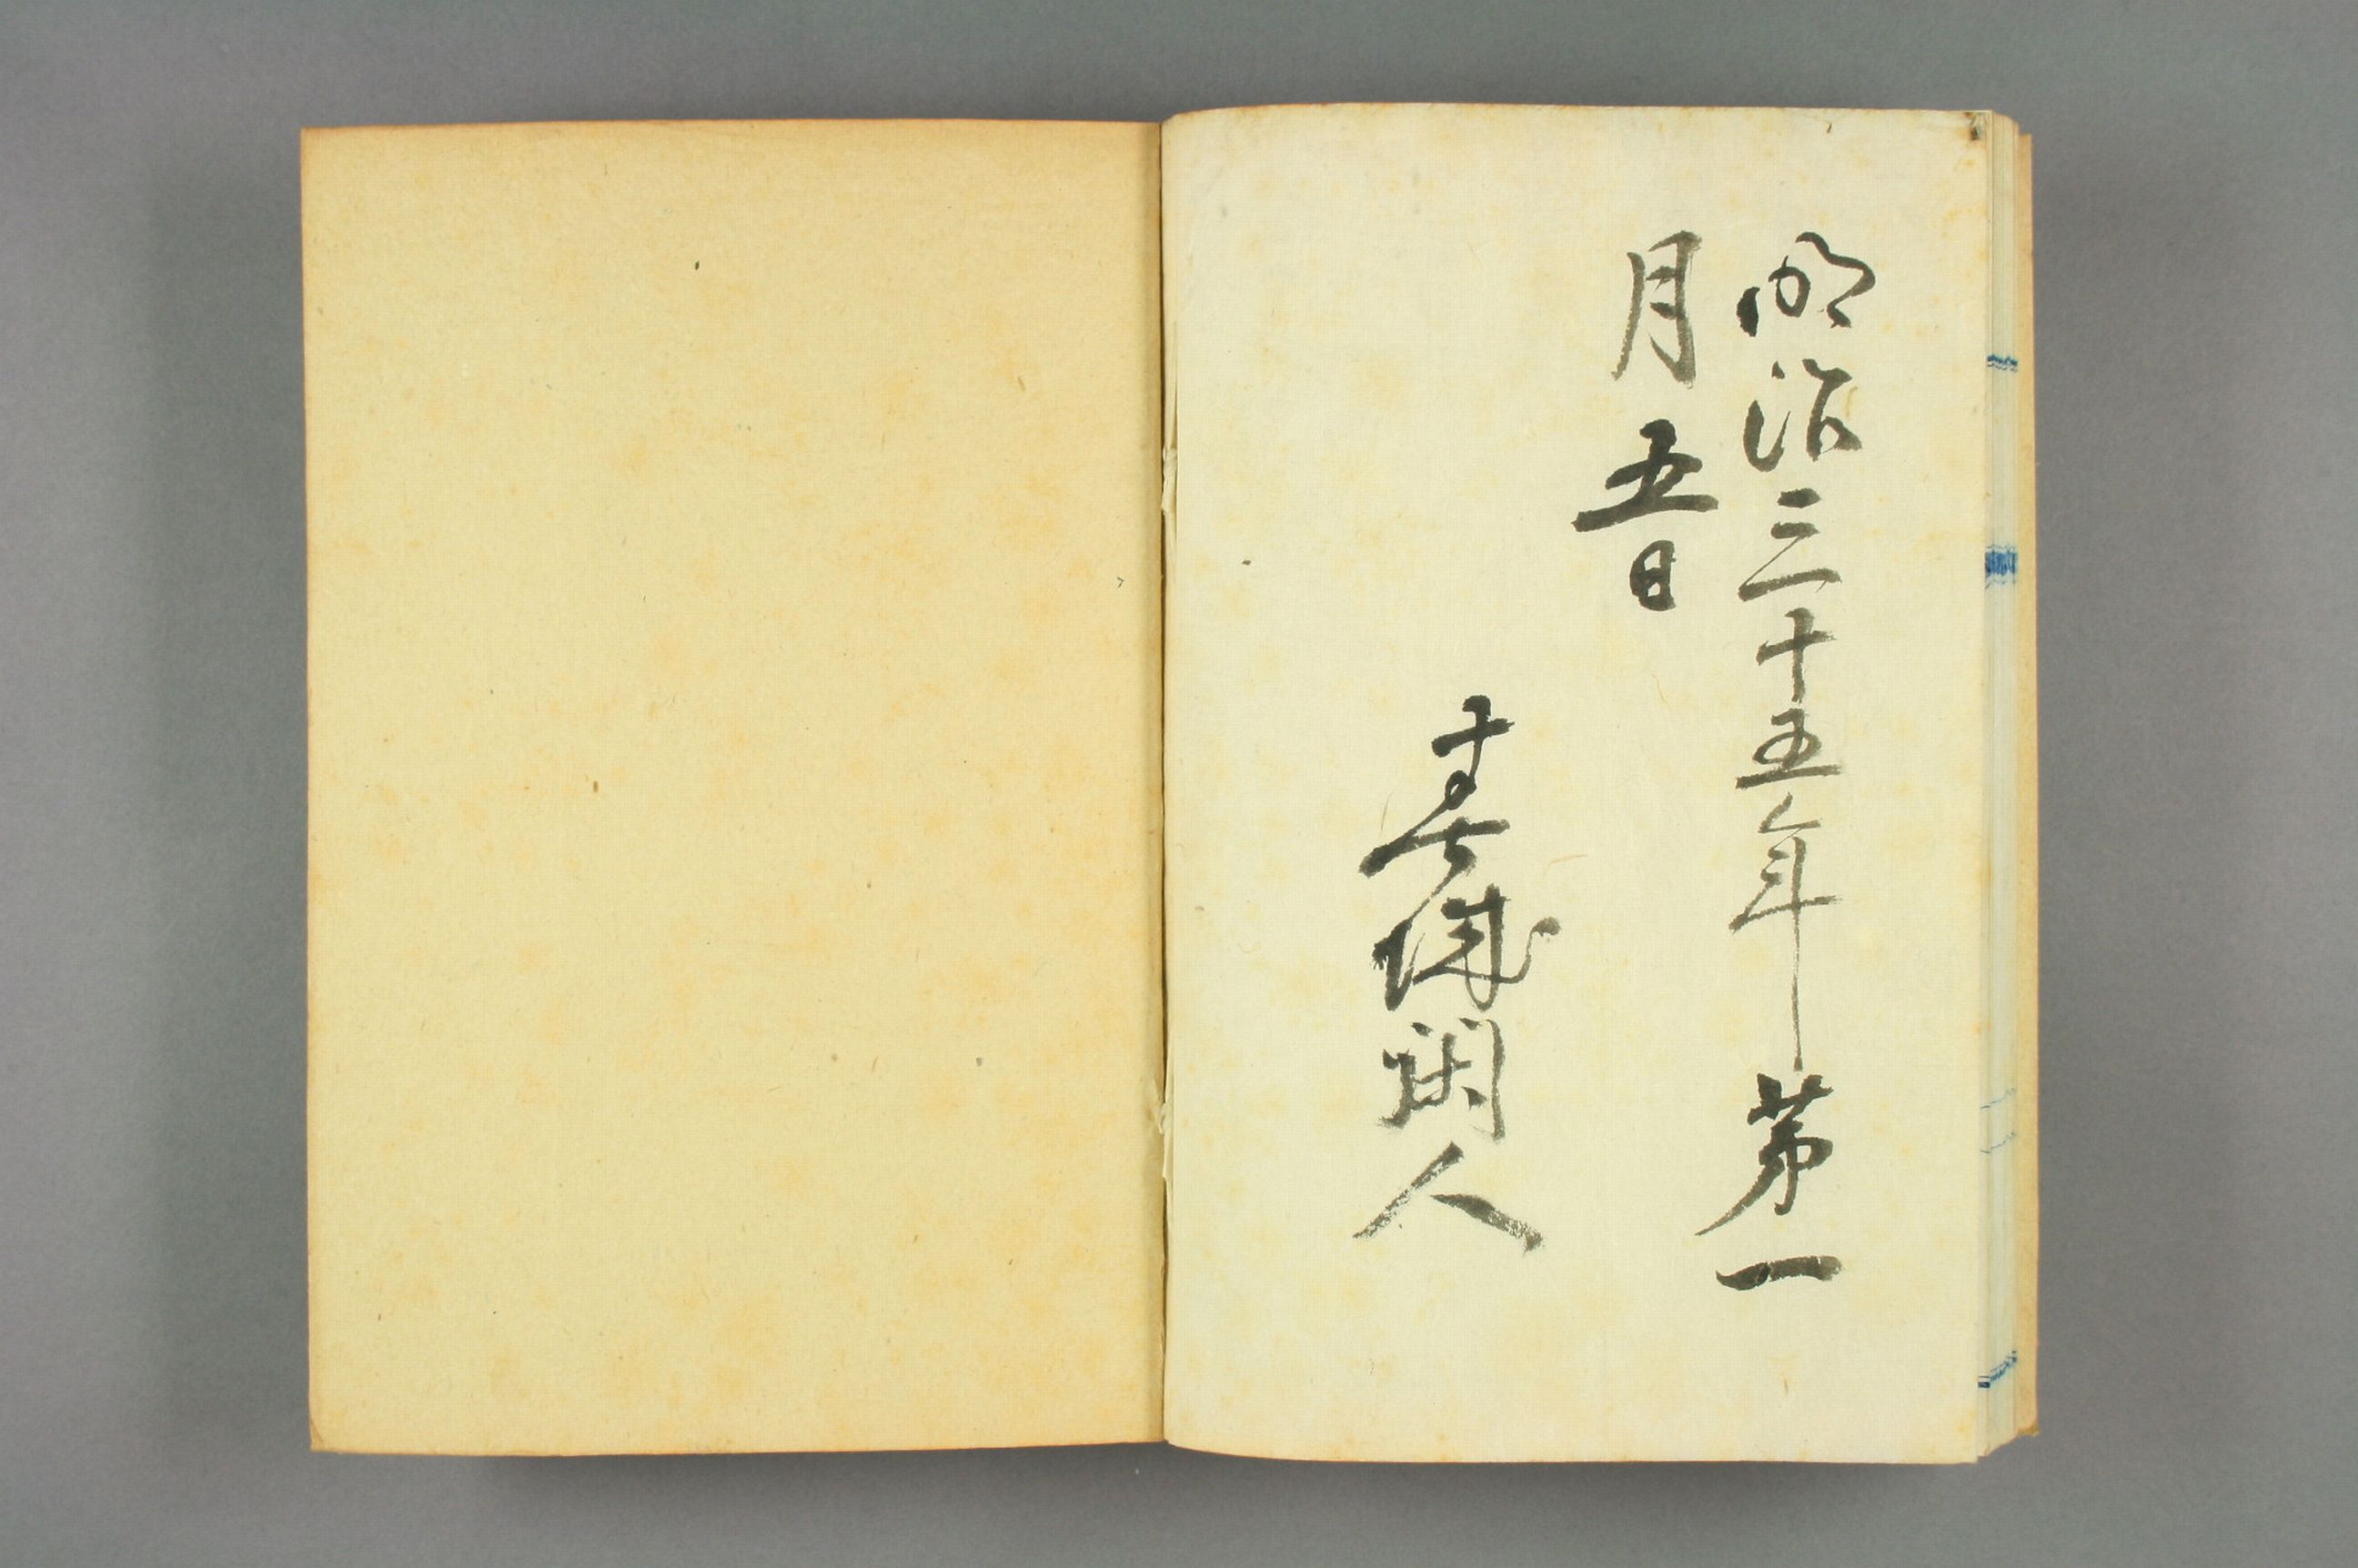 明治三十五年第一
月五日
春城閑人